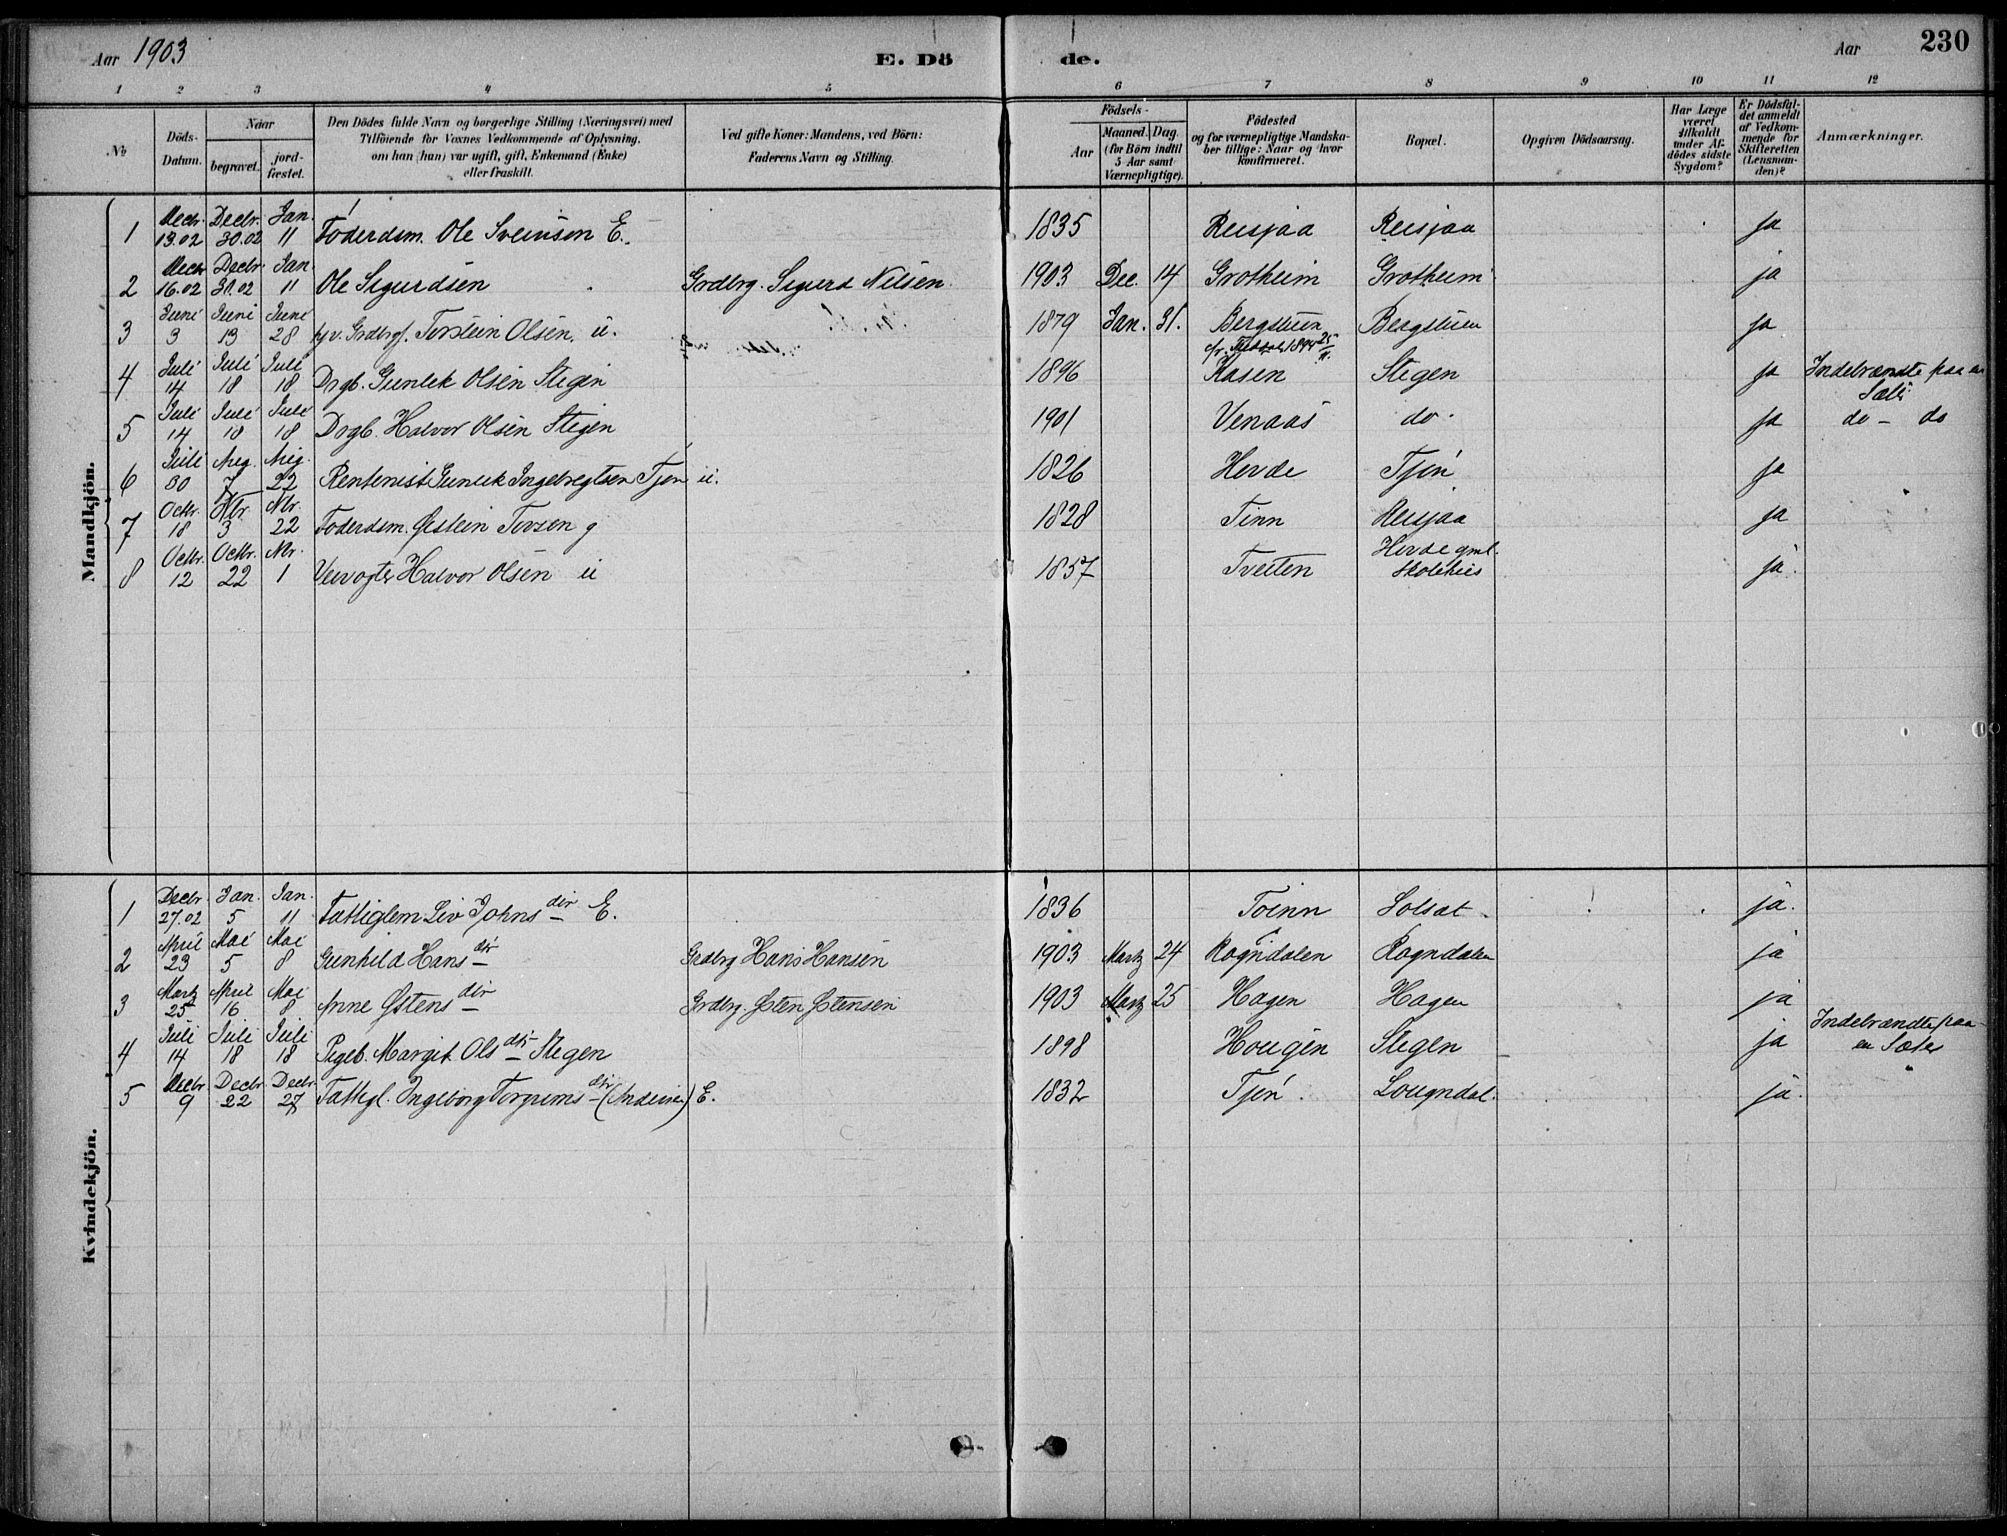 Aar 1903
E. Dö
de.
Aar
230
1 2 3 4 5 6 7 8 9 10 11 12
№
Döds-
Datum.
Naar
begravet.
jord-
fæstet.
Den Dödes fulde Navn og borgerlige Stilling (Næringsvei) med
Tilföiende for Voxnes Vedkommende af Oplysning,
om han (hun) var ugift, gift, Enkemand (Enke)
eller fraskilt.
Ved gifte Koner: Mandens, ved Börn:
Faderens Navn og Stilling.
Födsels-
Aar
Maaned. Dag.
(for Börn indtil
5 Aar samt
Værnepligtige).
Födested
og for værnepligtige Mandska-
ber tillige: Naar og hvor
konfirmeret.
Bopæl.
Opgiven Dödsaarsag.
Har Læge
været
tilkaldt
under Af-
dödes sidste
Sygdom?
Er Dödsfal-
det anmeldt
af Vedkom-
mende for
Skifteretten
(Lensman-
den)?
Anmærkninger.
Mandkjön.
1 Decbr. 13.02 Decbr. 30.02 Jan. 11 Foderdsm. Ole Sveinsen E. 1835 Reisjaa Reisjaa ja
2 Decbr 16.02 Decbr. 31.02 Jan. 11 Ole Sigurdsen Grdbrg. Sigurd Nilsen. 1903 Dec. 14 Grotheim Grotheim ja
3 Juni 3 Juni 13 Juni 28 Torstein Olsen u. 1879 Jan. 31. Bergstuen Bergstuen ja
4 Juli 14 Juli 18 Juli 18 Drgb. Gunlek Olsen Stegen 1896 Kasen Stegen ja Indebrændte paa en
Sæter
5 Juli 14 Juli 18 Juli 18 Drgb. Halvor Olsen Stegen 1901 Venaas do. ja do – do
6 Juli 30 Aug. 7 Aug. 22 Rentenist Gunlek Ingebregtsen Tjøn u. 1826 Herde Tjøn ja
7 Octbr. 18 Nbr. 3 Nbr. 22 Foderdsm. Østein Torsen g 1828 Tinn Reisjaa ja
8 Octbr. 12 Octbr. 22 Nbr. 1 Halvor Olsen u 1857 Tveiten Herde gml.
Skolehus ja.
Kvindekjön.
1 Decbr 27.02 Jan. 5 Jan. 11 Fattiglem Liv Johnsdtr E. 1836 Toinn Solsat ja.
2 April 23 Mai 5 Mai 8 Gunhild Hansdtr Grdbrg Hans Hansen 1903 Marts 24 Rogndalen Rogndalen ja
3 Marts 25 April 16 Mai 8 Anne Østensdtr Grdbrg. Østen Østensen 1903 Marts 25 Hagen Hagen ja
4 Juli 14 Juli 18 Juli 18 Pigeb. Margit Olsdtr Stegen 1898 Hougen Stegen ja Indebrændte paa
en Sæter
5 Decbr 9 Decbr 22 Decbr. 27 Fattigl. Ingeborg Torgrimsdtr E. 1832 Tjøn. Lougndal. ja.